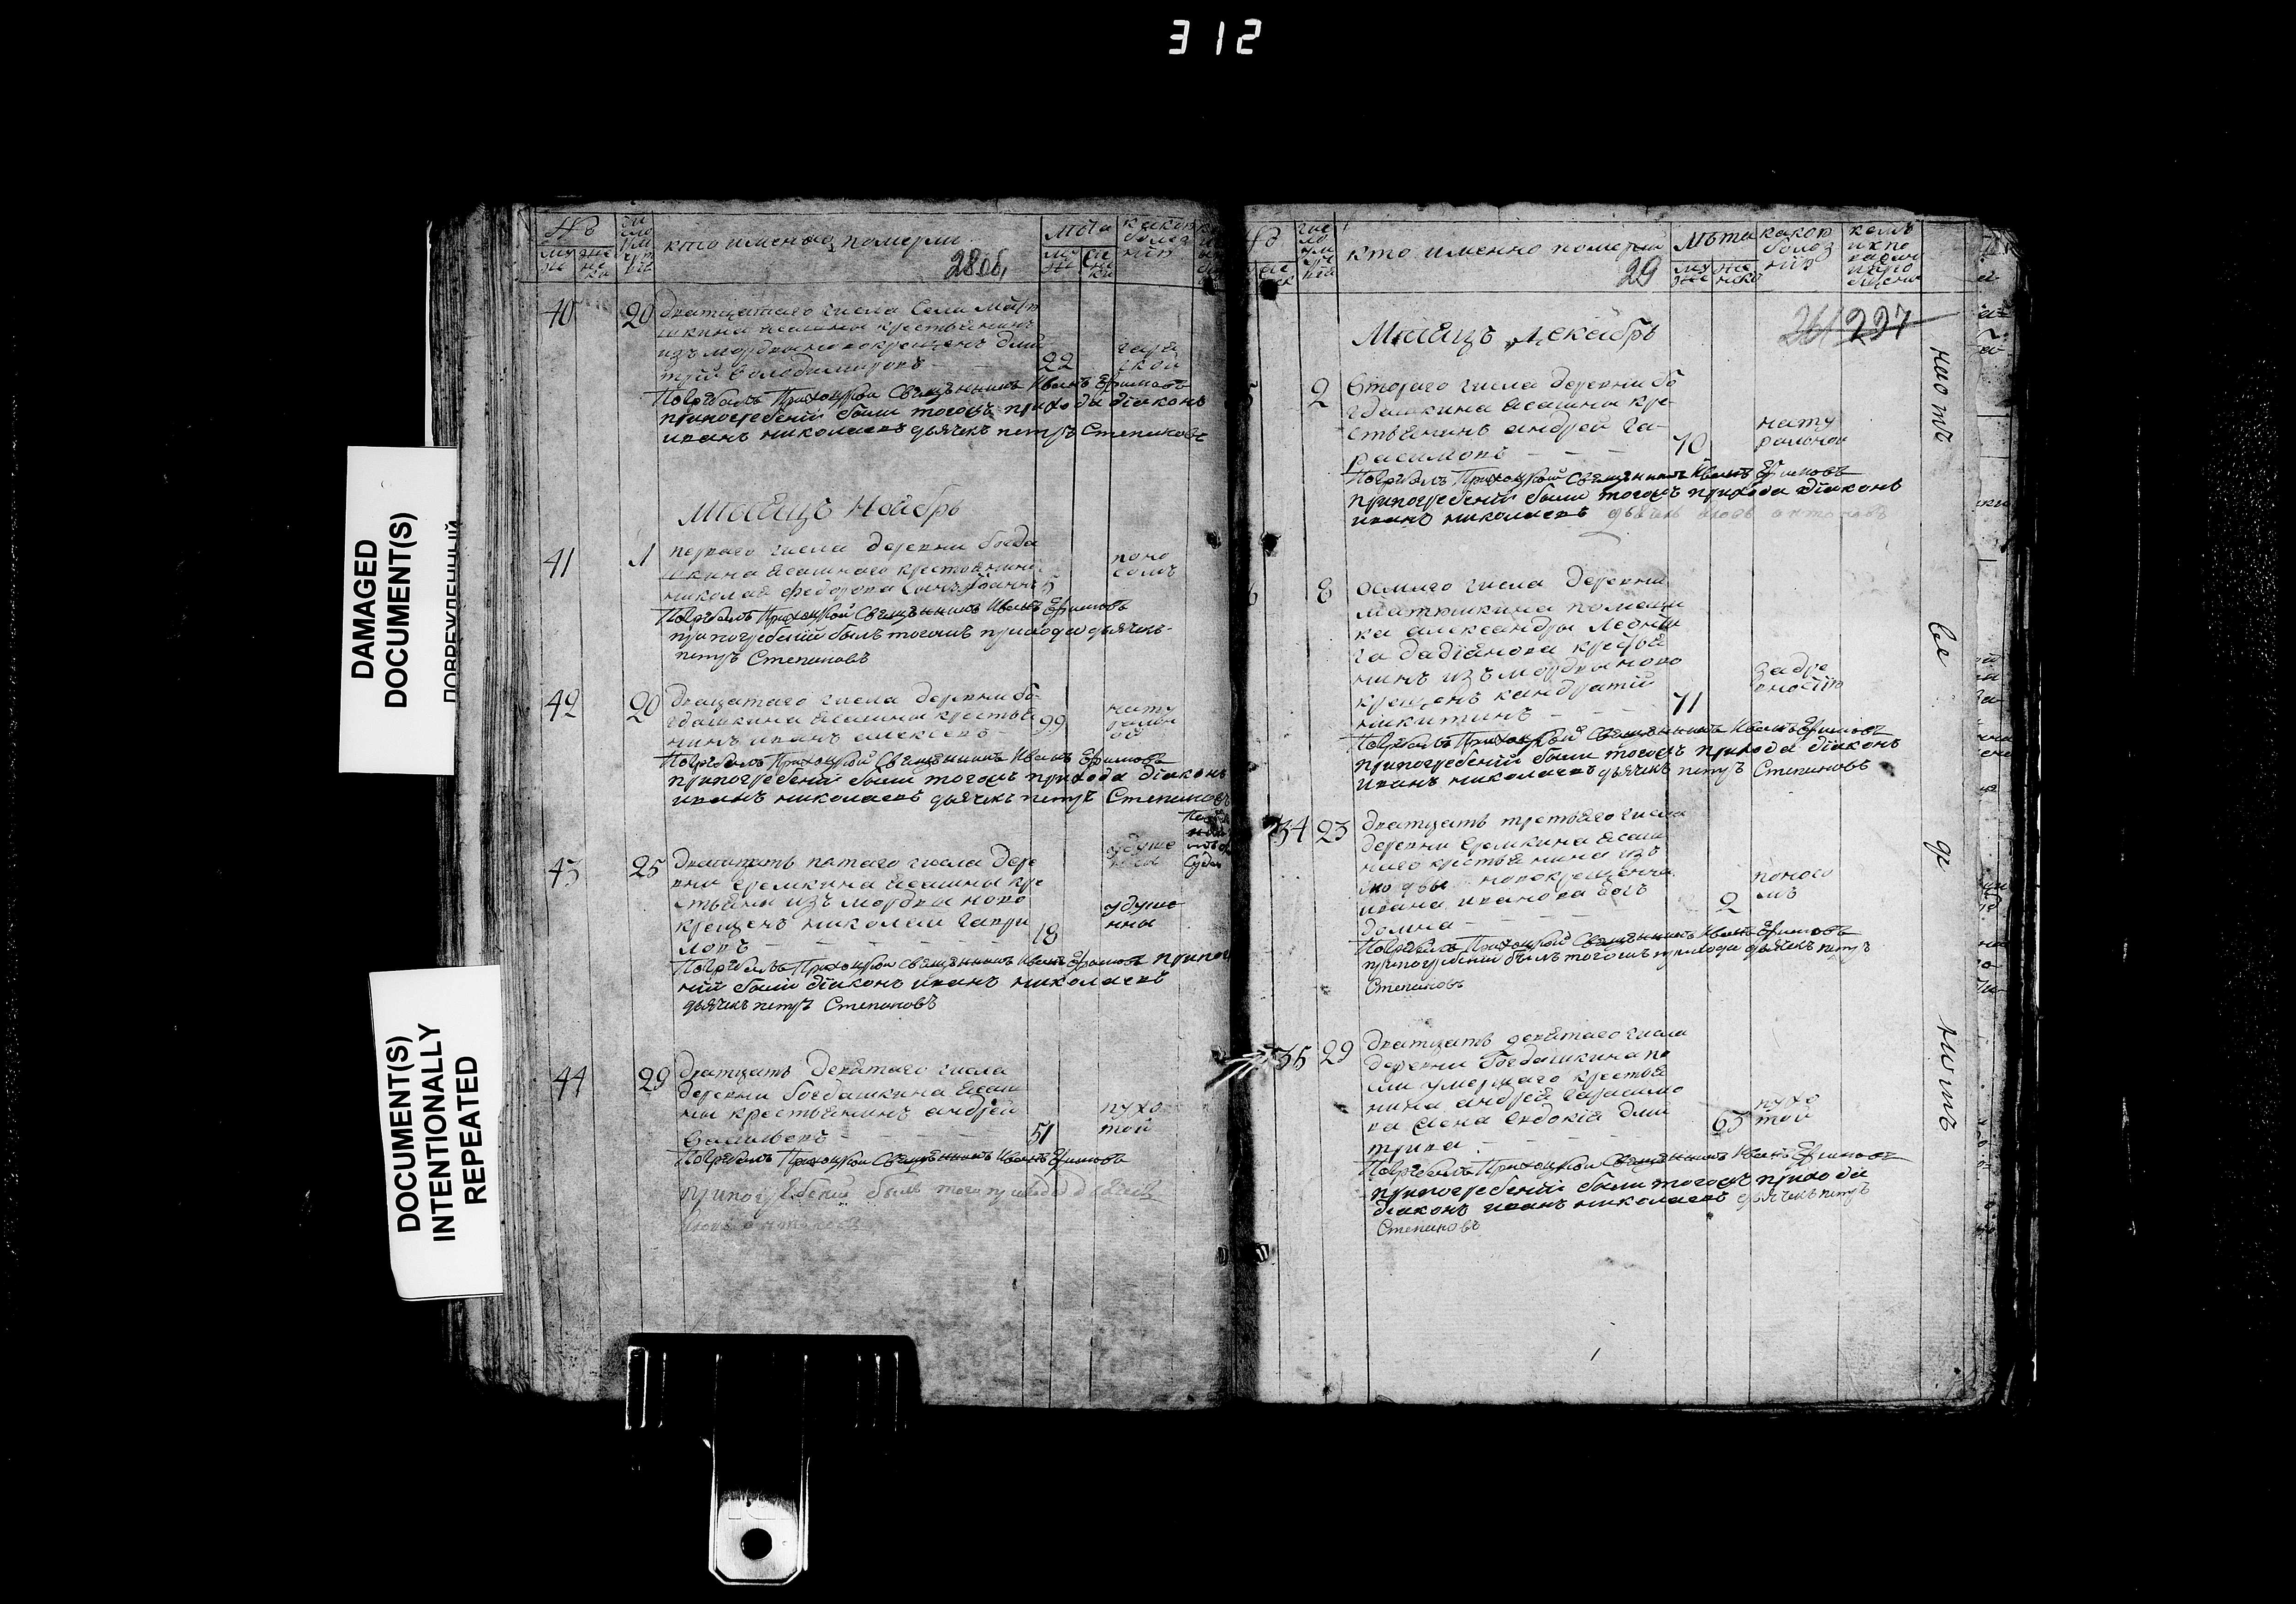 312
DAMAGED
DOCUMENT(S)
ПОВРЕЖДЕННЫЙ
DOCUMENT(S)
INTENTIONALLY
REPEATED
кто именно померли
28об.
лѣта
40
20
дватцатаго числа Села
изъ мордвы новокрещенъ дми
трій володимировъ
22
Погребалъ Приходской Священникъ Иванъ Ефимовъ
припогребеніи были тогожъ прихода діаконъ
иванъ николаевъ дьячекъ петръ Степановъ
Мѣсяцъ Ноябрь
41
1
перваго числа деревни богда
шкина ясашнаго крестьянина
николая федорова сынъ
5
поно
сомъ
Погребалъ Приходской Священникъ Иванъ Ефимовъ
припогребеніи былъ тогожъ прихода дьячекъ
петръ Степановъ
42
20
дватцатаго числа деревни бо
гдашкина ясашны крестья
нинъ иванъ алексеевъ
99
нату
ралн
ой
Погребалъ Приходской Священникъ Иванъ Ефимовъ
припогребеніи были тогожъ прихода діаконъ
иванъ николаевъ дьячекъ петръ Степановъ
43
25
дватцать пятаго числа дере
вни еремкина ясашны кре
стьянинъ изъ мордвы ново
крещенъ николай гаври
ловъ
18
удуше
нны
Погребалъ Приходской Священникъ Иванъ Ефимовъ припог
ній были діаконъ иванъ николаевъ
дьячекъ петръ Степановъ
44
29
дватцать девятаго числа
деревни богдашкина ясаш
ны крестьянинъ андрей
васильевъ
51
пухо
той
Погребалъ Приходской Священникъ Иванъ Ефимовъ
припогребеніи былъ того прихода дьячекъ
кто именно померли
29
лѣта
какою
болез
нію
261 227
Мѣсяцъ декабрь
2
втораго числа деревни бо
гдашкина ясашны кре
стьянинъ андрей га
расимовъ
70
нату
ралной
Погребалъ Приходской Священникъ Иванъ Ефимовъ
припогребеніи были тогожъ прихода діаконъ
иванъ николаевъ дьячекъ антоновъ
8
осмаго числа деревни
матюшкина помещи
ка александры леонть
га дадіанова крестья
нинъ изъ мордвы ново
крещенъ кандратій
никитинъ
71
задре
вностію
Погребалъ Приходской Священникъ Иванъ Ефимовъ
припогребеніи были тогожъ прихода діаконъ
иванъ николаевъ дьячекъ петръ Степановъ
34
23
дватцать третьяго числа
деревни еремкина ясаш
наго крестьянина изъ
мордвы новокрещенча
ивана иванова дочь
домна
2
поносо
мъ
Погребалъ Приходской Священникъ Иванъ Ефимовъ
припогребеніи былъ тогожъ прихода дьячекъ петръ
Степановъ
35
29
дватцать девятаго числа
деревни богдашкина по
сли умершаго крестья
нина андрея гарасимо
ва жена евдокія дми
трива
65
пухо
той
Погребалъ Приходской Священникъ Иванъ Ефимовъ
припогребеніи были тогожъ прихода
діаконъ иванъ николаевъ дьячекъ петръ
Степановъ